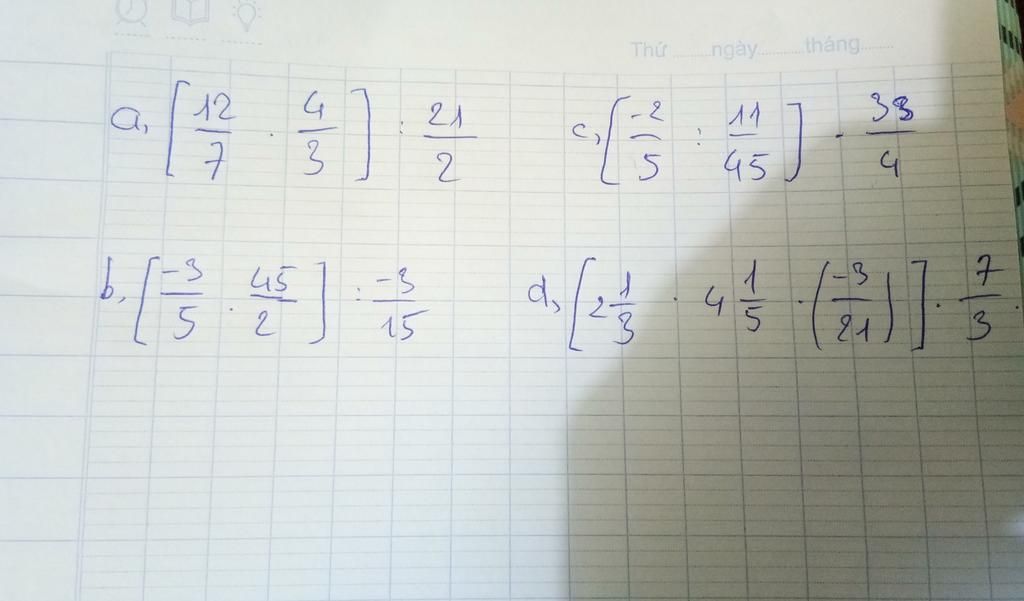 Thứ.......ngày..........tháng.......
a, [12/7 . 4/3] : 21/2
c, [-2/5 : 11/45] . 33/4
b, [-3/5 . 45/2] : -3/15
d, [2 1/3 . 4 1/5 . (-3/21)] . 7/3.